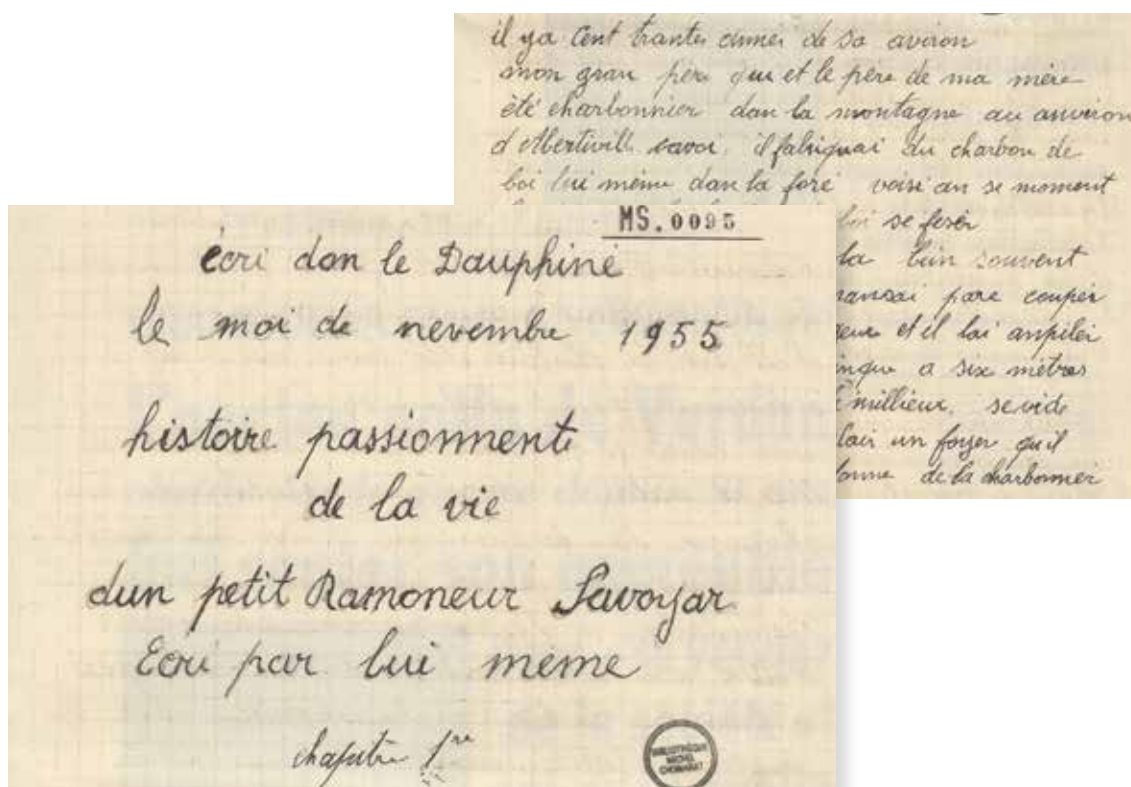 il y a cent trantes année de sa aviron
mon gran père qui et le père de ma mère
été charbonnier dan la montagne au anviron
d'Albertivill savoi. il fabriquai du charbon de
boi lui même dan la foré voisi an se moment
boi se fesér
la bien souvent
pare coupér
et il lai anpiléi
a six mètres
millieux, se vide
un foyer qu'il
de la charbonnier
MS.0095
écri dan le Dauphiné
le moi de novembre 1955
histoire passionnente
de la vie
dun petit Ramoneur Savoyar
Ecri par lui même
chapitre 1re
BIBLIOTHÈQUE
MICHEL
CHOMARAT